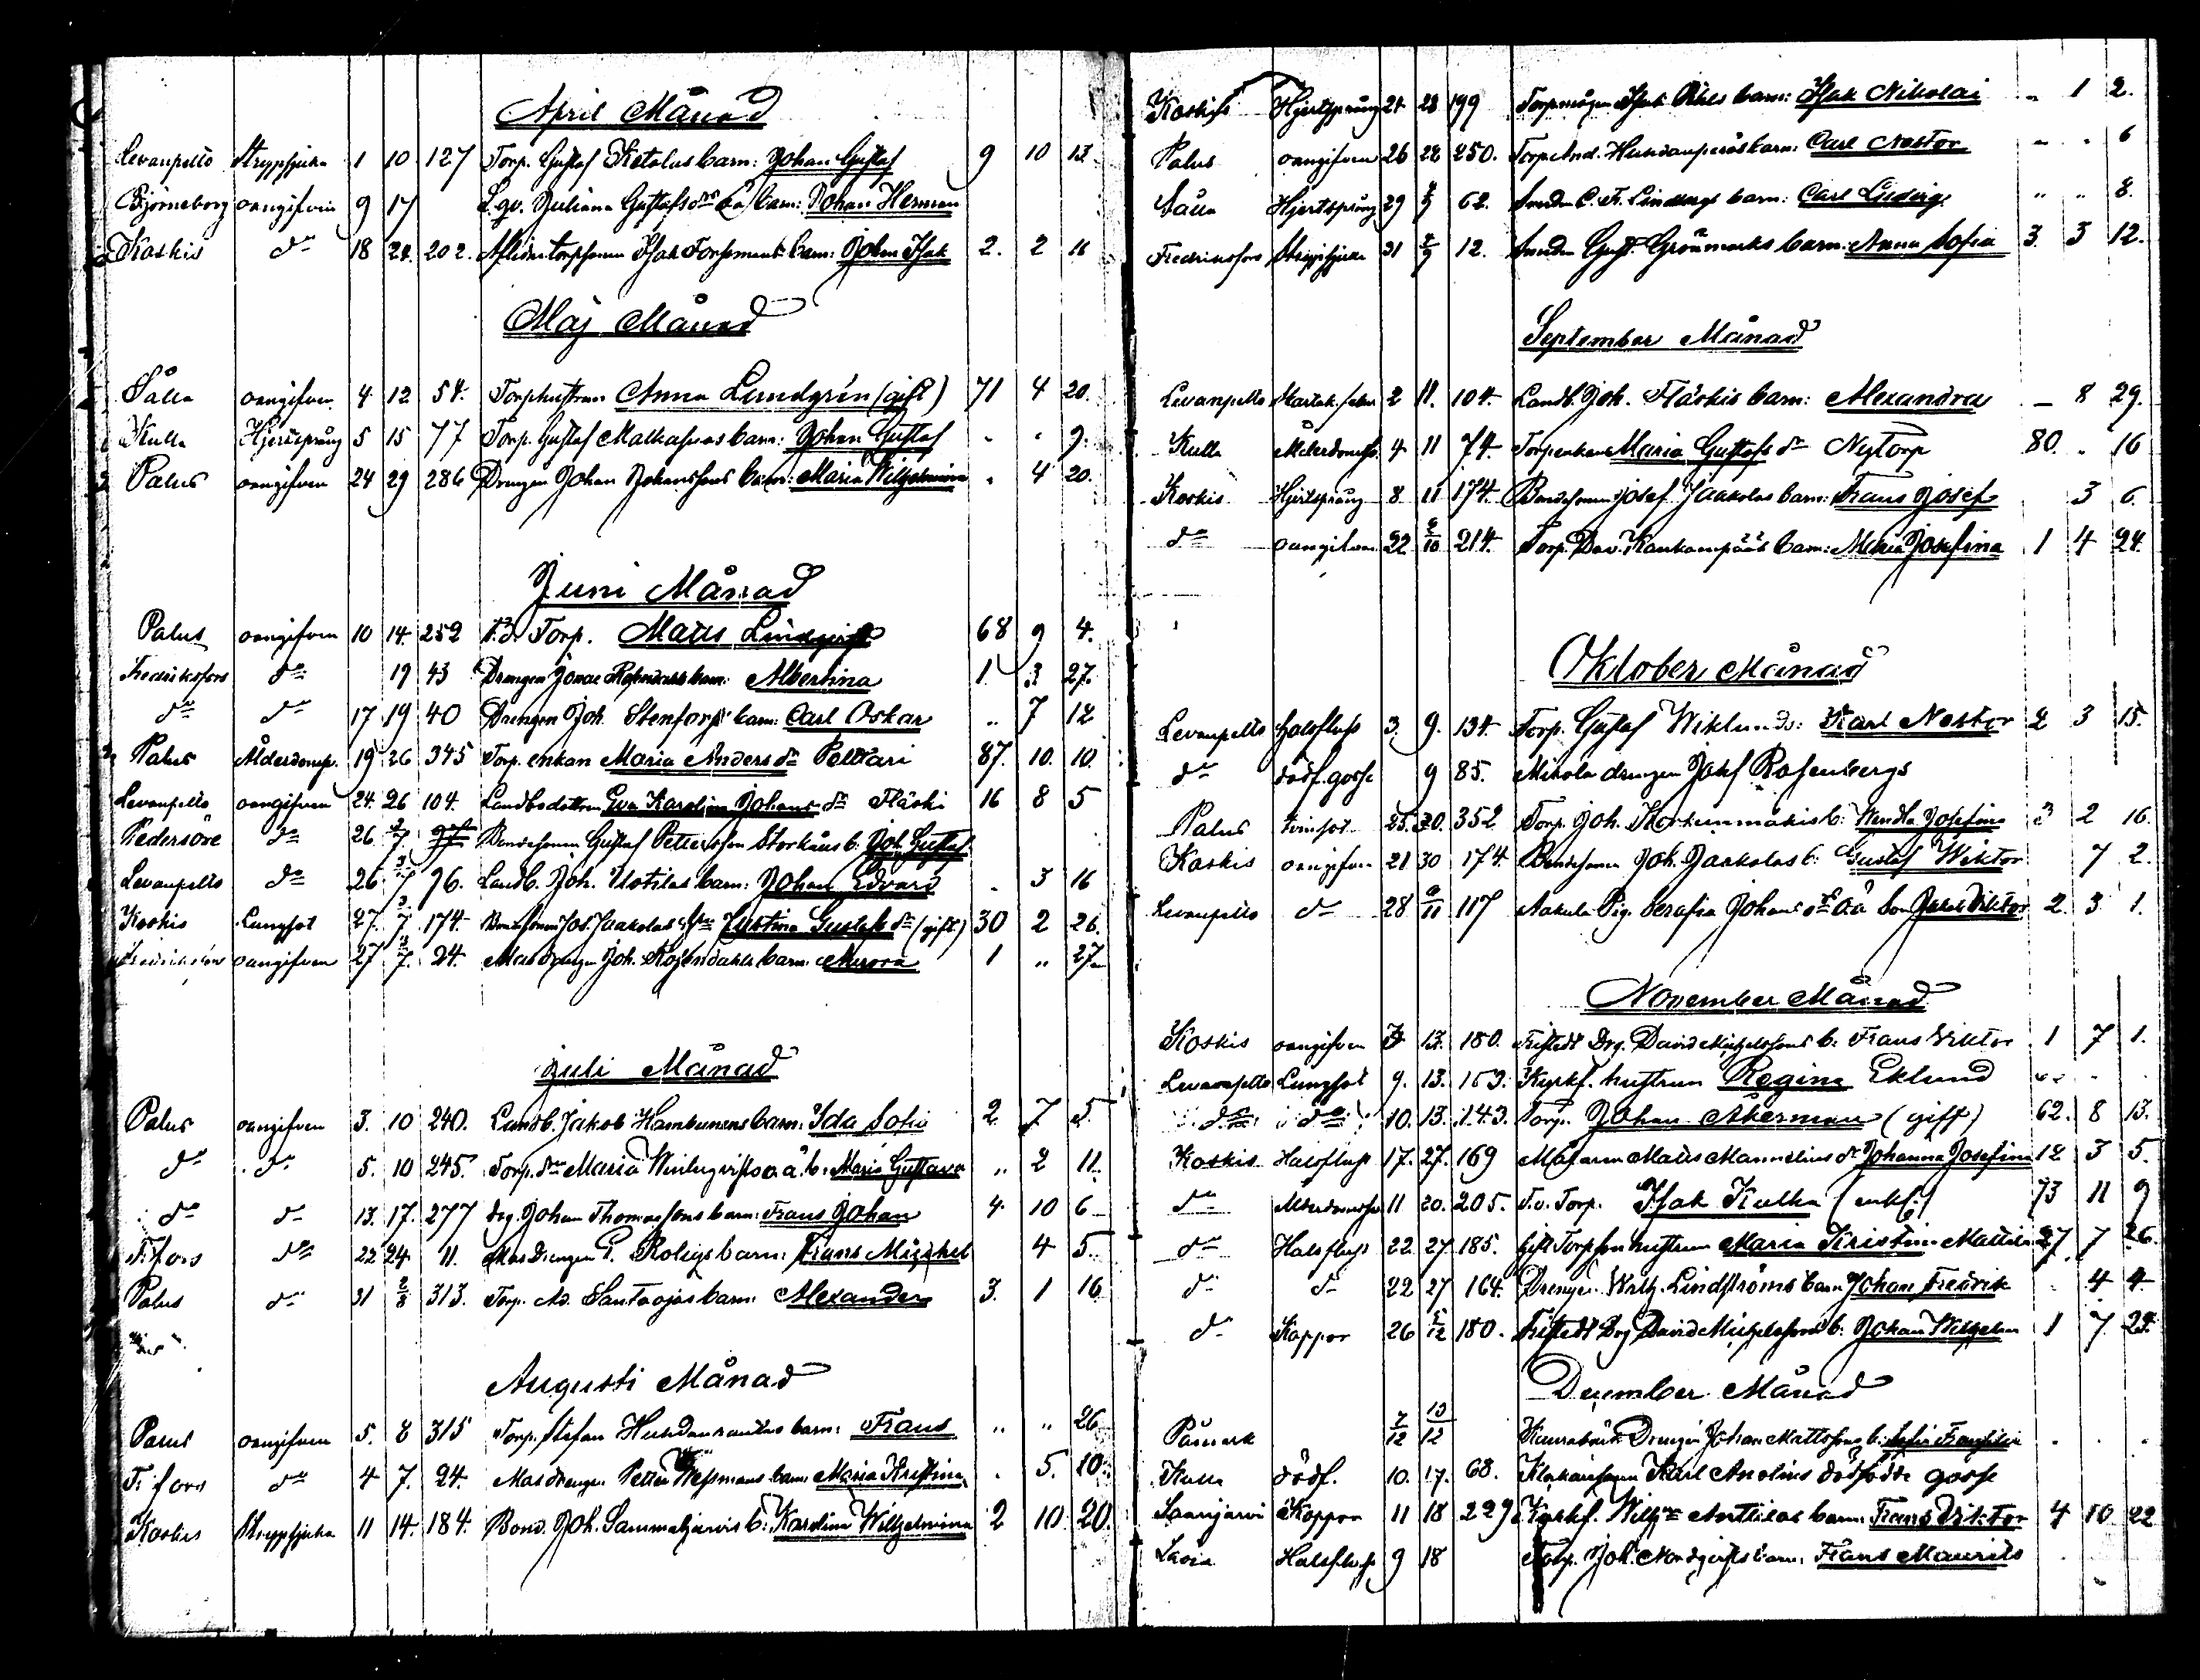 April Månad
Levanpelto Strypsjuka 1 10 127 Torp. Gustaf Ketolas barn: Johan Gustaf 9 10 13
Björneborg oangifven 9 17 L.gv. Juliana Gustafsdr oä barn: Johan Herman
Koskis do 18 24 202. Afliden torpsonen Isak Forssmans barn: Johan Isak 2. 2 16
Maj Månad
Sålla oangifven 4 12 54. Torphustrun Anna Lundgrén (gift) 71 4 20.
Kulla Hjertsprång 5 15 77 Torp. Gustaf Malkasuos barn: Johan Gustaf " " 9.
Palus oangifven 24 29 286 Drengen Johan Johanssons barn: Maria Wilhelmina " 4 20.
Juni Månad
Palus oangifven 10 14 252 f.d. Torp. Matts Lindqvist 68 9 4.
Fredriksfors do 19 43 Drengen Jonas barn: Albertina 1 3 27.
do do 17 19 40 Drengen Joh. Stentorps barn: Carl Oskar " 7 12
Palus Ålderdomsv. 19 26 345 Torp. enkan Maria Anders dr Peltari 87. 10. 10.
Levanpelto oangifven 24. 26 104. Landbodottren Eva Karolina Johans dr Fläski 16 8 5
Pedersöre do 26 2/7 Bondesonen Gustaf Pettersson Storhäus b. Joh. Gustaf
Levanpelto do 26 3/7 96. Landb. Joh. Uotilas barn: Johan Edvard " 3 16
Koskis Lungsot 27. 3/7 174. Bondsonen Jos. Jaakolas Justina Gustafs dr (gift) 30 2 26.
Fredriksfors oangifven 27 3/7. 24. Masdrengen Joh. Rosendahls barn: Aurora 1 " 27
Juli Månad
Palus oangifven 3. 10 240. Landb. Jakob Hambunens barn: Ida Sofia 2. 7 5.
do do 5. 10 245. Torp. dr Maria Winlqvists o.ä. b. Maria Gustava " 2 11.
do do 13. 17. 277 Drg. Johan Thomassons barn: Frans Johan 4. 10 6
F.fors do 22 24 11. Mas Drengen P. Roligs barn: Frans Mickhel 4 5.
Palus do 31 2/8 313. Torp. Ad. Santaojas barn: Alexander 3. 1 16
Augusti Månad
Palus oangifven 5. 8 315 Torp. Stefan barn: Frans " " 26
F. fors do 4 7. 24. Masdrengen Petter Wessmans barn Maria Kristina " 5. 10.
Koskis Strypsjuka 11 14. 184. Bond. Joh. Sammaljärvis b: Karolina Wilhelmina 2 10. 20.
Koskis Hjertsprång 24. 28 199 Isak barn: Isak Nikolai " 1 2.
Palus oangifven 26 28 250. Torp. And. barn: Carl Nestor " " 6
Sålla Hjertsprång 29 62. Smeden C. F. Lindbergs barn: Carl Ludvig " " 8.
Fredriksfors Strypsjuka 31 12. Smeden Gust. Grönmarks barn: Anna Sofia 3. 3 12.
September Månad
Levanpelto 2 11. 104. Landb. Joh. Fläskis barn: Alexandra — 8 29.
Kulla Ålderdomsv. 4 11 74. Torpenkan Maria Gustafs dr Nytorp 80. " 16
Koskis Hjertsprång 8 11 174. Bondesonen Josef Jaakolas barn: Frans Josef 3 6
do oangifven 22 2/10 214. Torp. Dav. Kankaanpääs barn: Maria Josefina 1 4 24.
Oktober Månad
Levanpelto Halsfluss 3. 9. 134. Torp. Gustaf Wiklunds: Karl Nestor 2 3 15.
do dödf. gosse 9 85. Mikola drengen Josef Rosenbergs
Palus 25. 30. 352 Torp. Joh. b: Wendla Josefina 3 2 16.
Koskis oangifven 21 30 174. Bondesonen Joh. Jaakolas b: Gustaf Wiktor 7 2.
Levanpelto do 28 117 Aakula Pig. Serafia Johans dr o.ä. Son Jakob Viktor 2. 3 1.
November Månad
Koskis oangifven 7 13. 180. Fristedt Drg. David Michelssons b: Frans Viktor 1 7 1.
Levanpelto Lungsot 9. 13. 153. Kyrkf. hustrun Regina Eklund
do do 10. 13. 143. Torp. Johan Åkerman (gift) 62. 8 13.
Koskis Halsfluss 17. 27. 169 Matts Mannelins dr Johanna Josefina 12 3 5.
do Ålderdomssv. 11 20. 205. F.v. Torp. Isak Kulha (enkl.) 73 11 9
do Halsfluss 22 27 185. Gift. Torpson hustrun Maria Kristina 27 7 26.
do do 22 27 164. Drengen Wilh. Lindströms barn Johan Fredrik " 4 4
do Koppor 26 5/12 180. Fristedt Drg David Michelssons b: Johan Wilhelm 1 7 24.
December Månad
Påmark 7/12 13/12 Drengen Johan Mattssons b: Sofia
Kulla dödf. 10. 17. 68. Karl Anolins dödfödde gosse
Saarijärvi Koppor 11 18 229 Kyrkf. Wilh. Anttilas barn: Frans Viktor 4 10 22
Lavia Halsfluss 9 18 Torp. Joh. Nordqvists barn: Frans Maurits